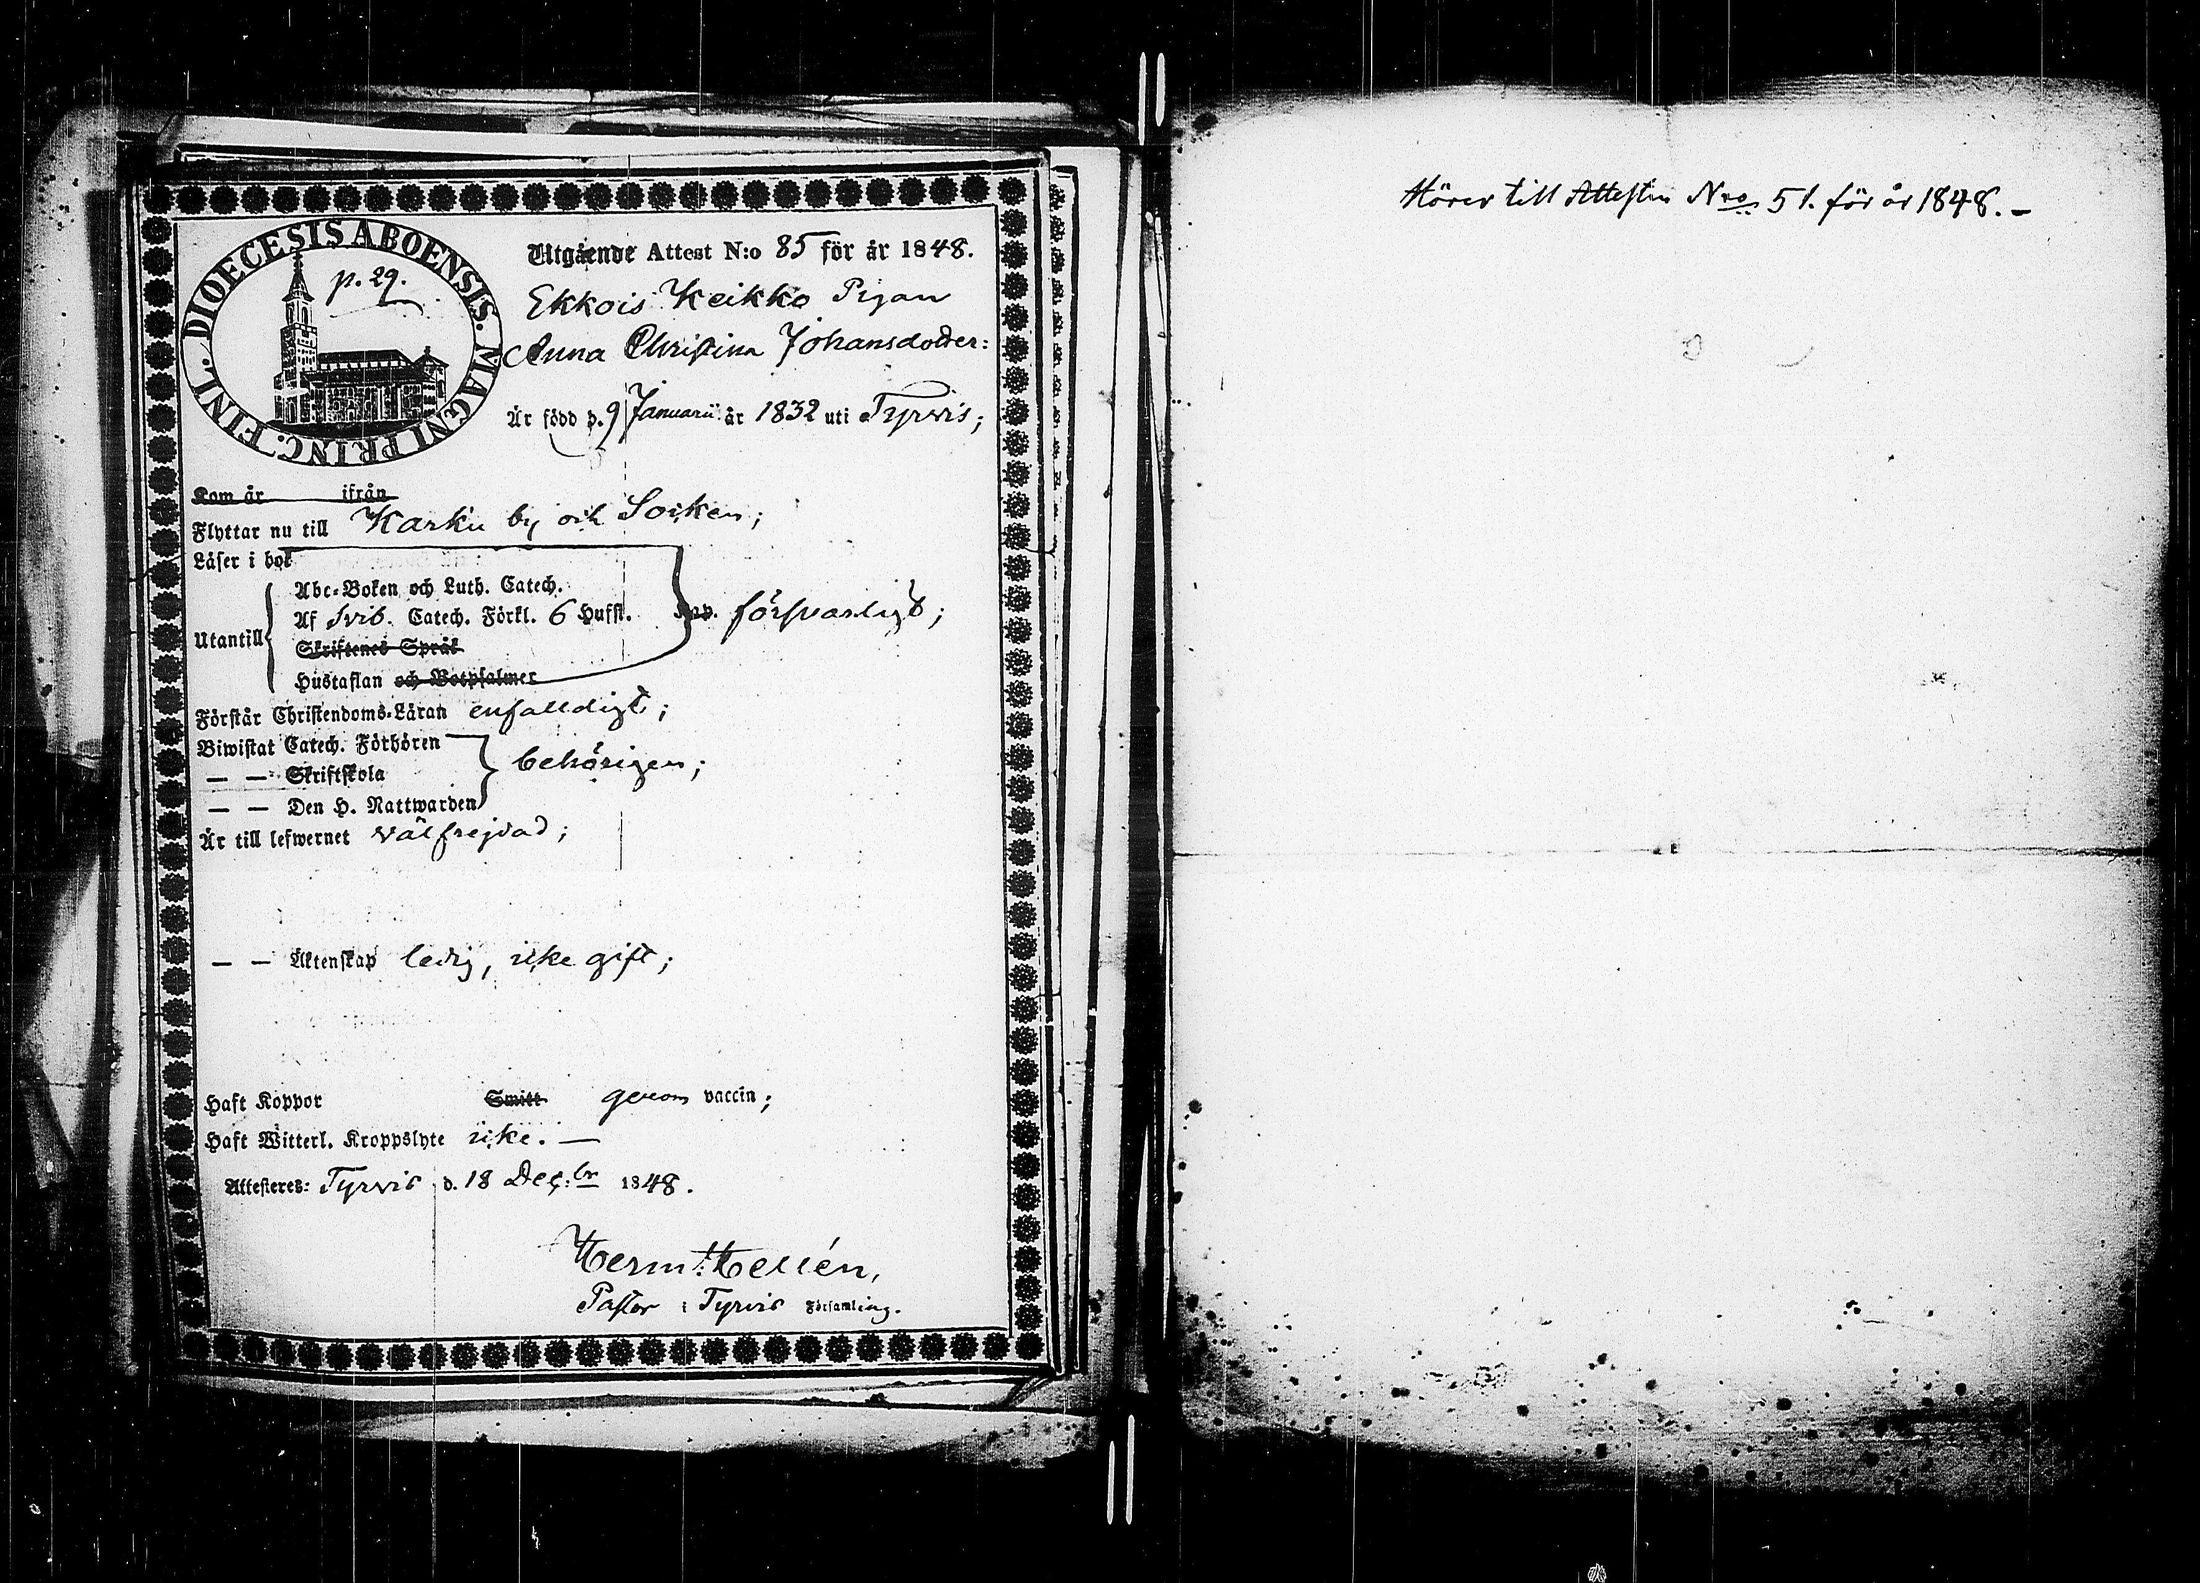 DIOECESIS ABOENSIS. MAGNI PRINC. FINL.
p. 29.
Utgående Attest N:o 85 för år 1848.
Ekkois Heikko Pigan
Anna Christina Johansdotter:
Är född d. 9 Januarii år 1832 uti Tyrvis;
Kom år ifrån
Flyttar nu till Karku by och Socken;
Läser i bok
Utantill
Abc-Boken och Luth. Catech.
Af Svib. Catech. Förkl. 6 Hufst. försvarligt;
Skriftenes Språk
Hustaflan och Botpsalmer
Förstår Christendoms-Läran enfaldigt;
Biwistat Catech. Förhören
— — Skriftskola behörigen;
— — Den H. Nattwarden
Är till lefwernet välfrejdad;
— — Äktenskap ledig, icke gift;
Haft Koppor Smitt genom vaccin;
Haft Witterl. Kroppslyte icke. —
Attesteres: Tyrvis d. 18 Dec:br 1848.
Herm: Hellén,
Pastor i Tyrvis Församling.
Hörer till Attesten Nro 51. för år 1848. –